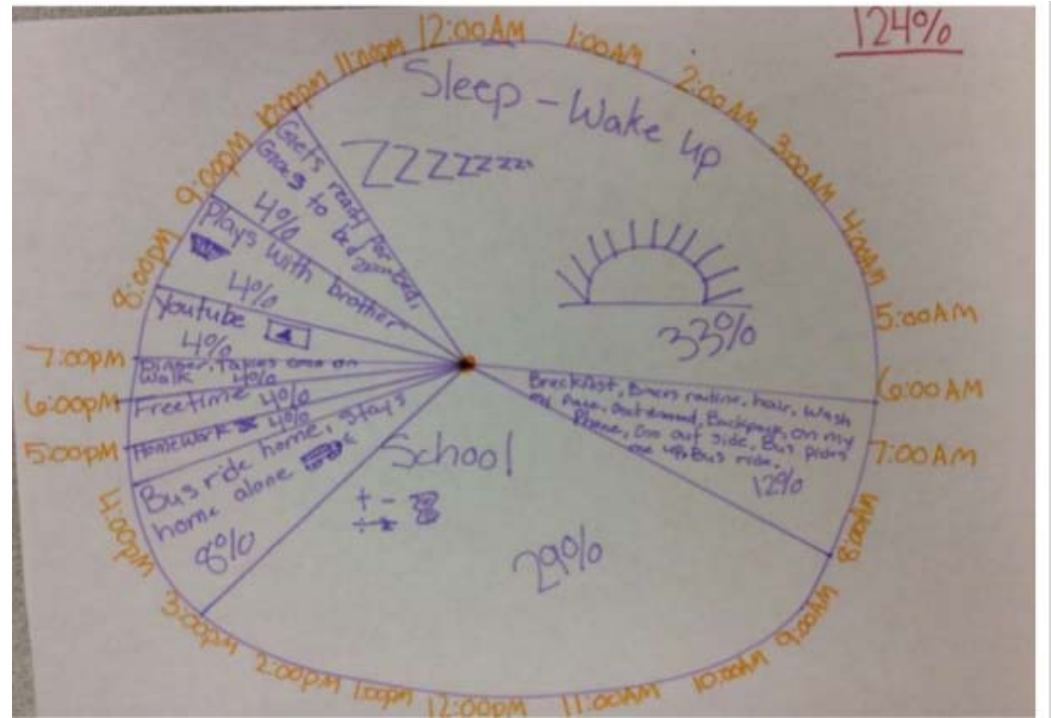 124%
12:00AM
1:00AM
2:00AM
3:00AM
4:00AM
5:00AM
6:00AM
7:00AM
8:00AM
9:00AM
10:00AM
11:00AM
12:00PM
1:00PM
2:00PM
3:00PM
4:00PM
5:00PM
6:00PM
7:00PM
8:00PM
9:00PM
10:00PM
11:00PM
Sleep - Wake up
ZZZZzzzz
33%
Breckfast, routine, hair, wash
my face, Backpack, on my
Phone, Goo out side, Bus picks
me up, Bus ride.
12%
School
+ -
÷
29%
Bus ride home, stays
home alone
8%
Homework 4%
Freetime 4%
Dinner, Takes on
walk 4%
Youtube
4%
Plays with brother
4%
Gets ready for bed,
to bed
4%